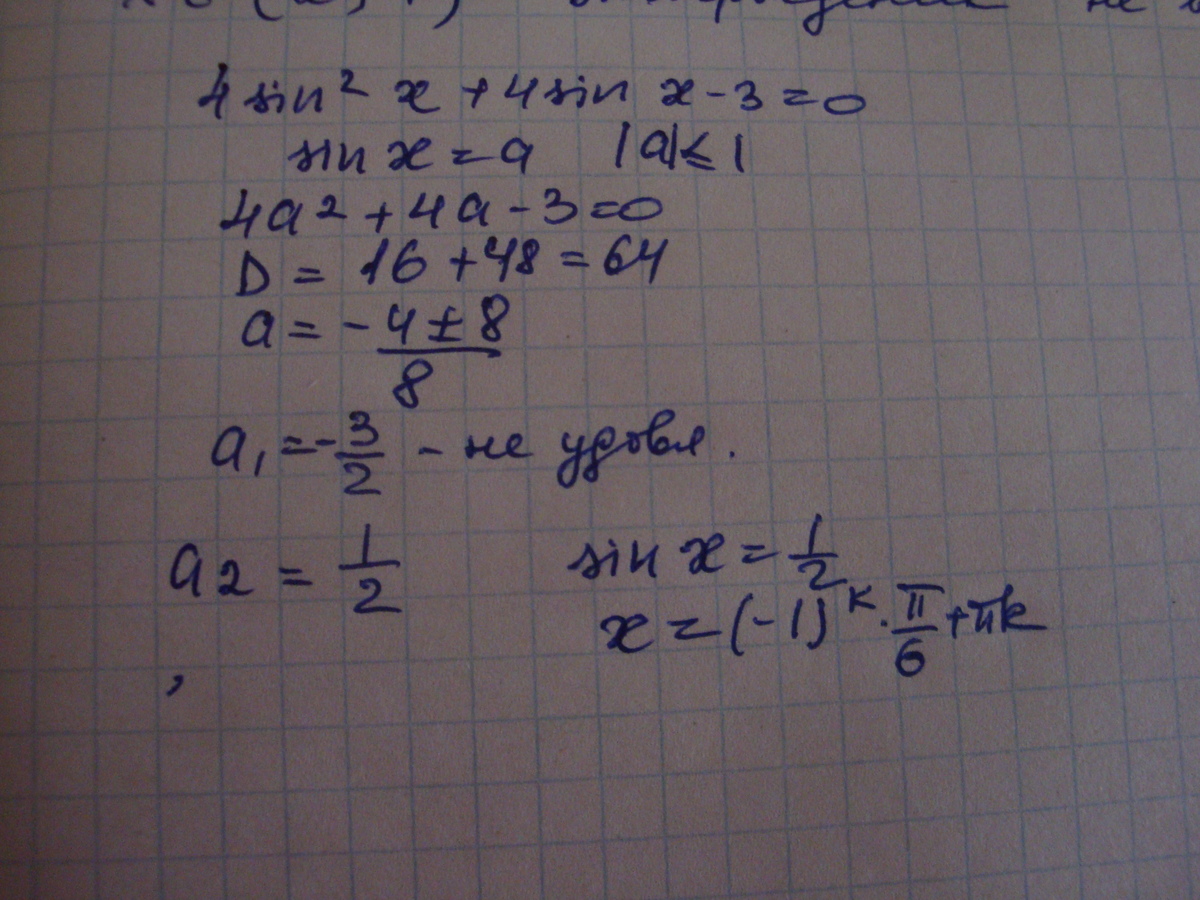 4 sin² x + 4 sin x - 3 = 0
sin x = a |a| ≤ 1
4a² + 4a - 3 = 0
D = 16 + 48 = 64
a = -4 ± 8 / 8
a₁ = -3/2 - не удовл.
a₂ = 1/2 sin x = 1/2
x = (-1)ᵏ · π/6 + πk